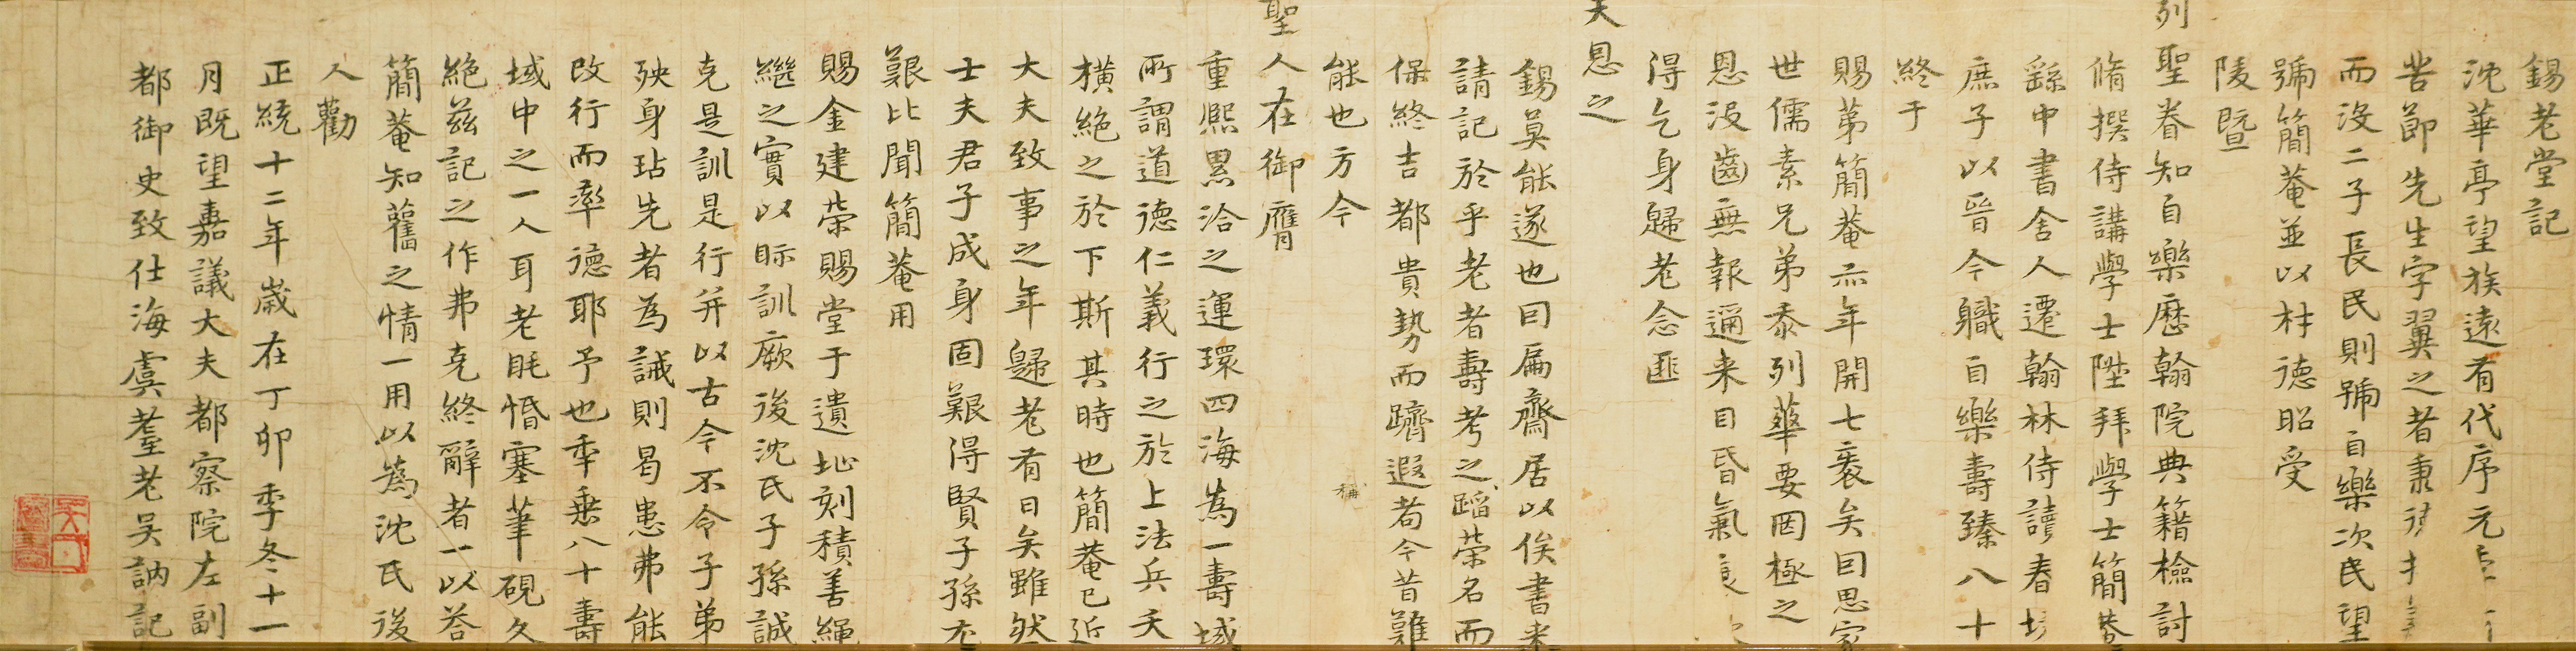 錫老堂記
沈華亭望族遠有代序元
苦節先生字翼之者秉
而沒二子長民則號自樂次民望
號簡菴並以材德昭受
陵暨
列聖眷知自樂歷翰院典籍檢討
脩撰侍講學士陞拜學士簡菴
繇中書舍人遷翰林侍讀春坊
庶子以晉今職自樂壽臻八十
終于
賜第簡菴亦年開七袠矣囙思家
世儒素兄弟忝列華要罔極之
恩沒齒無報邇来目昏氣
得乞身歸老念匪
天恩之
錫莫能遂也囙扁齋居以俟書来
請記於乎老者壽考之蹈榮名而
保終吉都貴勢而躋遐者今昔難
稱
能也方今
聖人在御膺
重熙累洽之運環四海為一壽域
所謂道德仁義行之於上法兵夭
橫絕之於下斯其時也簡菴已近
大夫致事之年歸老有日矣雖然
士夫君子成身固艱得賢子孫尤
艱比聞簡菴用
賜金建榮賜堂于遺址刻積善繩
繼之實以眎訓厥後沈氏子孫誠
克是訓是行并以古今不令子弟
殃身玷先者為誡則曷患弗能
改行而率德耶予也年垂八十壽
域中之一人耳老眊惛塞筆硯久
絕茲記之作弗克終辭者一以答
簡菴知舊之情一用以為沈氏後
人勸
正統十二年歲在丁卯季冬十一
月既望嘉議大夫都察院左副
都御史致仕海虞耋老吳訥記